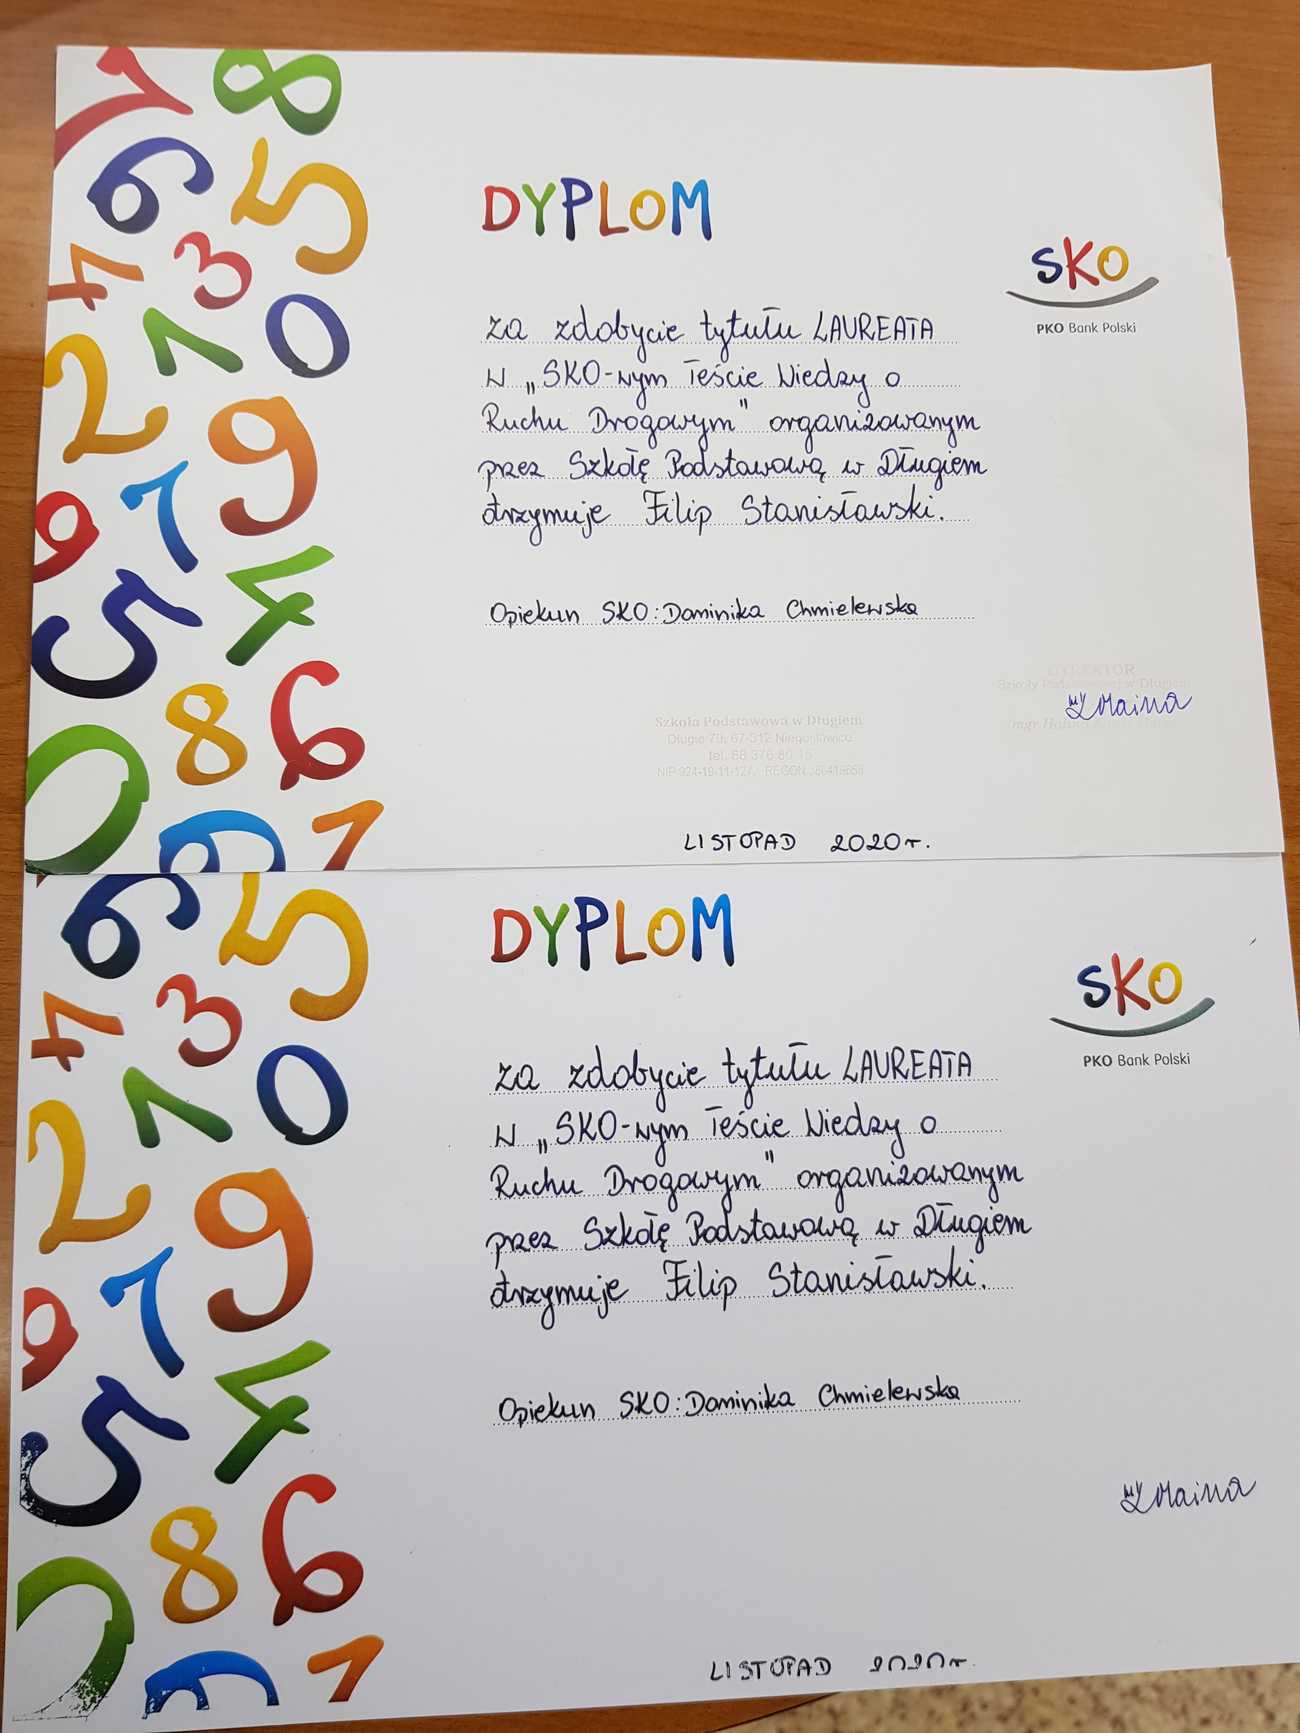 DYPLOM
SKO
PKO Bank Polski
za zdobycie tytułu LAUREATA
w „SKO-wym Teście Wiedzy o
Ruchu Drogowym" organizowanym
przez Szkołę Podstawową w Długiem
otrzymuje Filip Stanisławski.
Opiekun SKO: Dominika Chmielewska
DYREKTOR
Szkoły Podstawowej w Długiem
Szkoła Podstawowa w Długiem
Długie 79, 67-312 Niegosławice
tel. 68 376 80 15
LISTOPAD 2020 r.
DYPLOM
SKO
PKO Bank Polski
za zdobycie tytułu LAUREATA
w „SKO-wym Teście Wiedzy o
Ruchu Drogowym" organizowanym
przez Szkołę Podstawową w Długiem
otrzymuje Filip Stanisławski.
Opiekun SKO: Dominika Chmielewska
LISTOPAD 2020 r.